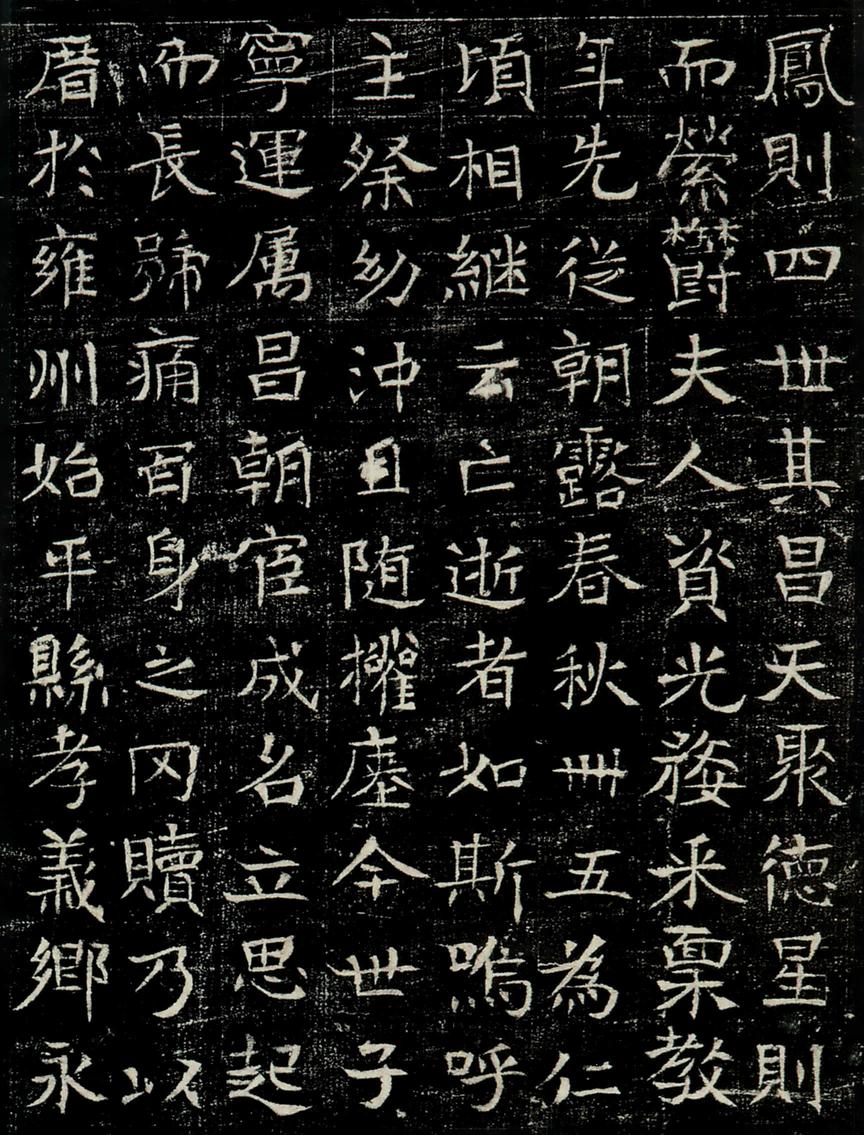 鳳則四世其昌天聚德星則
而縈欝夫人資光婺采稟教
年先從朝露春秋卌五為仁
頃相繼云亡逝者如斯嗚呼
主祭幼沖且随權瘞今世子
寧運属昌朝宦成名立思起
而長號痛百身之冈贖乃以
厝於雍州始平縣孝義鄉永